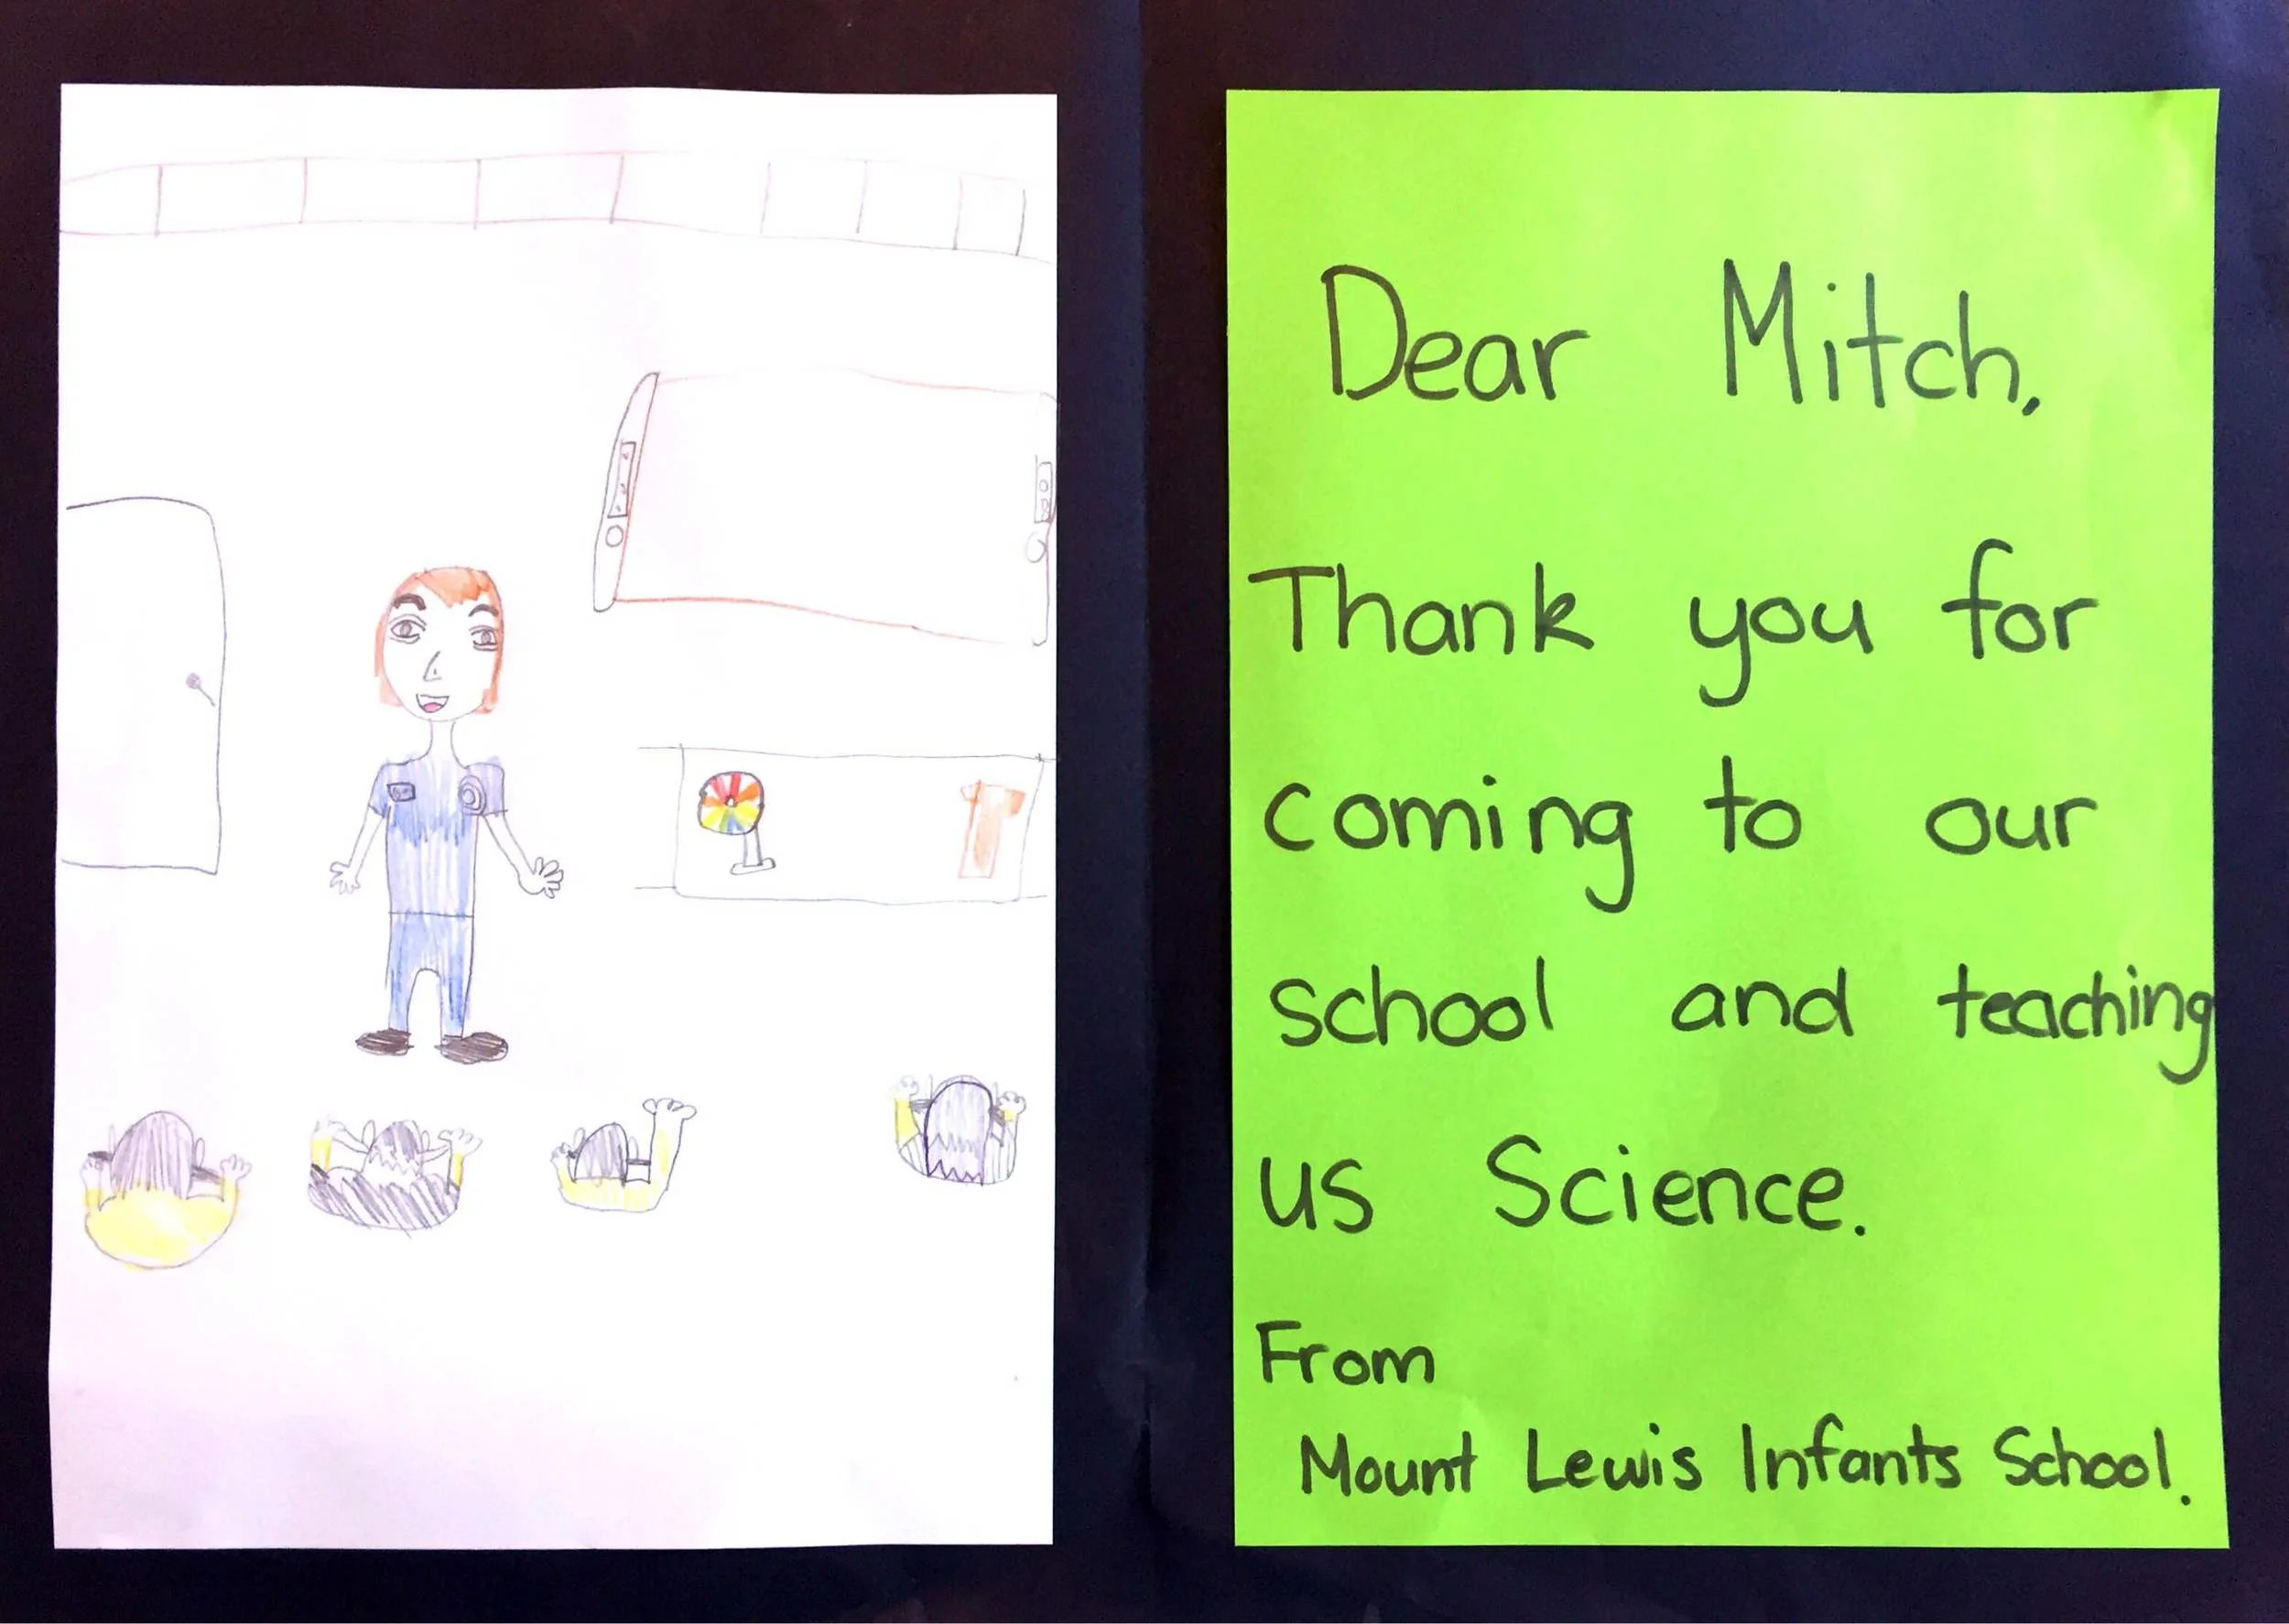 Dear Mitch,
Thank you for
coming to our
school and teaching
us Science.
From
Mount Lewis Infants School.